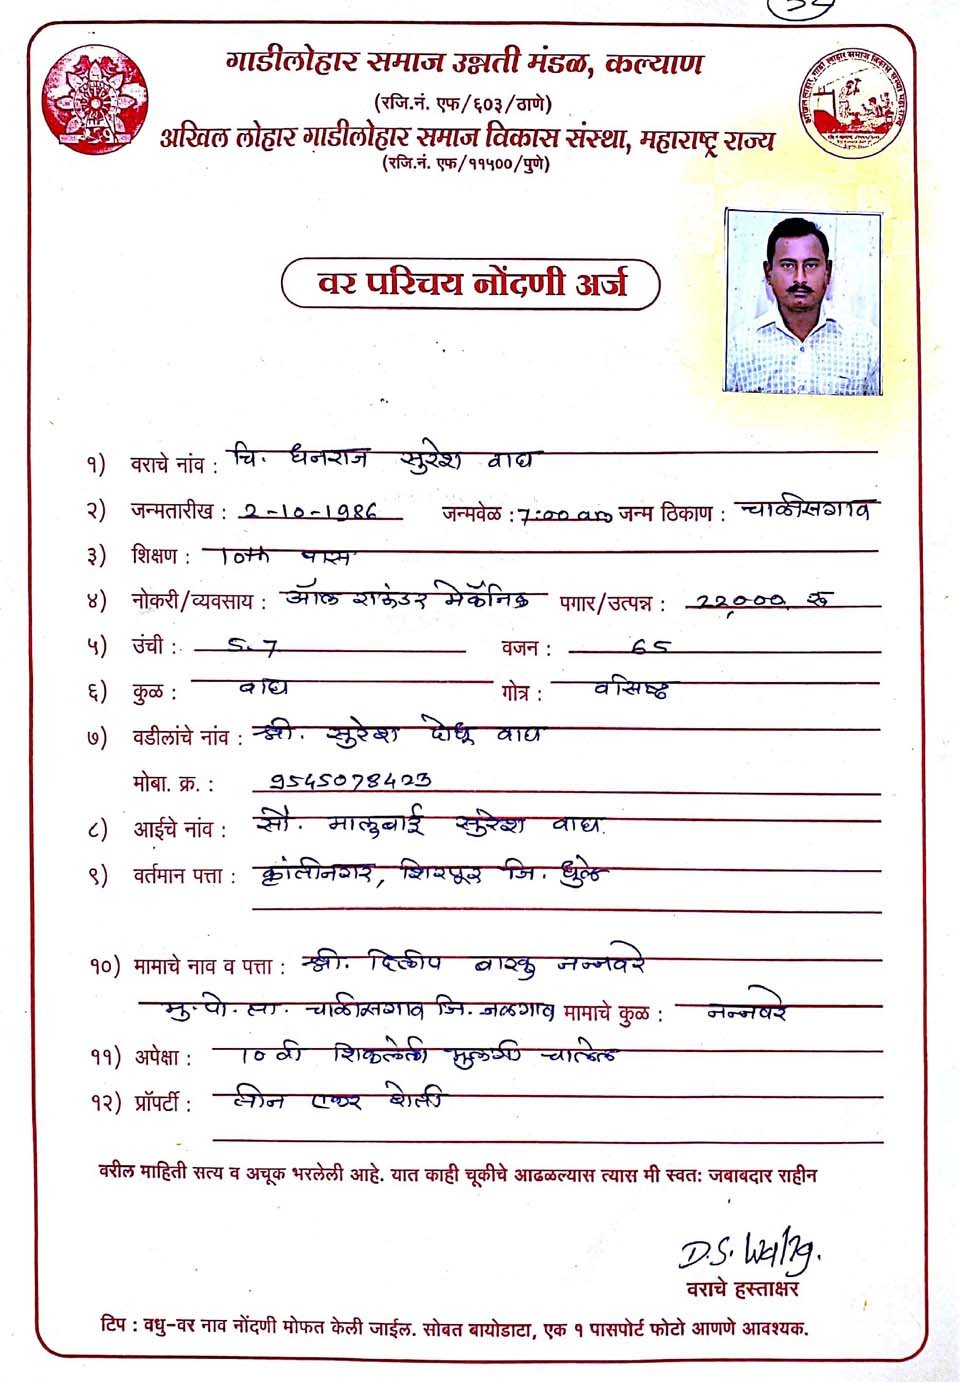 गाडीलोहार समाज उन्नती मंडळ, कल्याण
(रजि.नं. एफ/६०३/ठाणे)
अखिल लोहार गाडीलोहार समाज विकास संस्था, महाराष्ट्र राज्य
(रजि.नं. एफ/११५००/पुणे)
वर परिचय नोंदणी अर्ज
१) वराचे नांव : चि. धनराज सुरेश वाघ
२) जन्मतारीख : 2-10-1986 जन्मवेळ : 7:00 am जन्म ठिकाण : चाळीसगाव
३) शिक्षण : 10th पास
४) नोकरी/व्यवसाय : ऑल राऊंडर मेकॅनिक पगार/उत्पन्न : 22,000 रू
५) उंची : 5.7 वजन : 65
६) कुळ : वाघ गोत्र : वसिष्ठ
७) वडीलांचे नांव : श्री. सुरेश दोधू वाघ
मोबा. क्र. : 9545078423
८) आईचे नांव : सौ. मालुबाई सुरेश वाघ.
९) वर्तमान पत्ता : क्रांतीनगर, शिरपूर जि. धुळे
१०) मामाचे नाव व पत्ता : श्री. दिलीप बारकु नन्नवरे
मु. पो. ता. चाळीसगाव जि. जळगाव मामाचे कुळ : नन्नवरे
११) अपेक्षा : 10 वी शिकलेली मुलगी चालेल
१२) प्रॉपर्टी : तीन एकर शेती
वरील माहिती सत्य व अचूक भरलेली आहे. यात काही चूकीचे आढळल्यास त्यास मी स्वतः जबाबदार राहीन
D.S. Wagh.
वराचे हस्ताक्षर
टिप : वधु-वर नाव नोंदणी मोफत केली जाईल. सोबत बायोडाटा, एक १ पासपोर्ट फोटो आणणे आवश्यक.